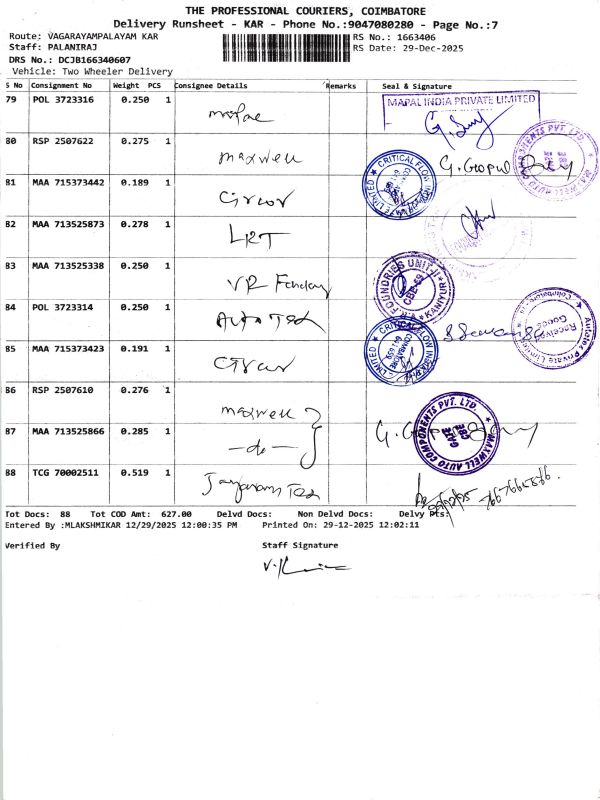 THE PROFESSIONAL COURIERS, COIMBATORE
Delivery Runsheet - KAR - Phone No.:9047080280 - Page No.:7
Route: VAGARAYAMPALAYAM KAR
RS No.: 1663406
Staff: PALANIRAJ
RS Date: 29-Dec-2025
DRS No.: DCJB166340607
Vehicle: Two Wheeler Delivery
S No Consignment No Weight PCS Consignee Details Remarks Seal & Signature
79 POL 3723316 0.250 1
MAPAL INDIA PRIVATE LIMITED
80 RSP 2507622 0.275 1 maxwell
81 MAA 715373442 0.189 1 Circor
CRITICAL FLOW
82 MAA 713525873 0.278 1 LRT
83 MAA 713525338 0.250 1 VR Foundry
FOUNDRIES UNIT-II
84 POL 3723314 0.250 1 Auto Tech
85 MAA 715373423 0.191 1 Circor
CRITICAL FLOW
86 RSP 2507610 0.276 1 maxwell
87 MAA 713525866 0.285 1 -do-
MAXWELL AUTO COMPONENTS PVT. LTD.
88 TCG 70002511 0.519 1
Tot Docs: 88 Tot COD Amt: 627.00 Delvd Docs: Non Delvd Docs: Delvy Pts:
Entered By :MLAKSHMIKAR 12/29/2025 12:00:35 PM Printed On: 29-12-2025 12:02:11
Verified By Staff Signature